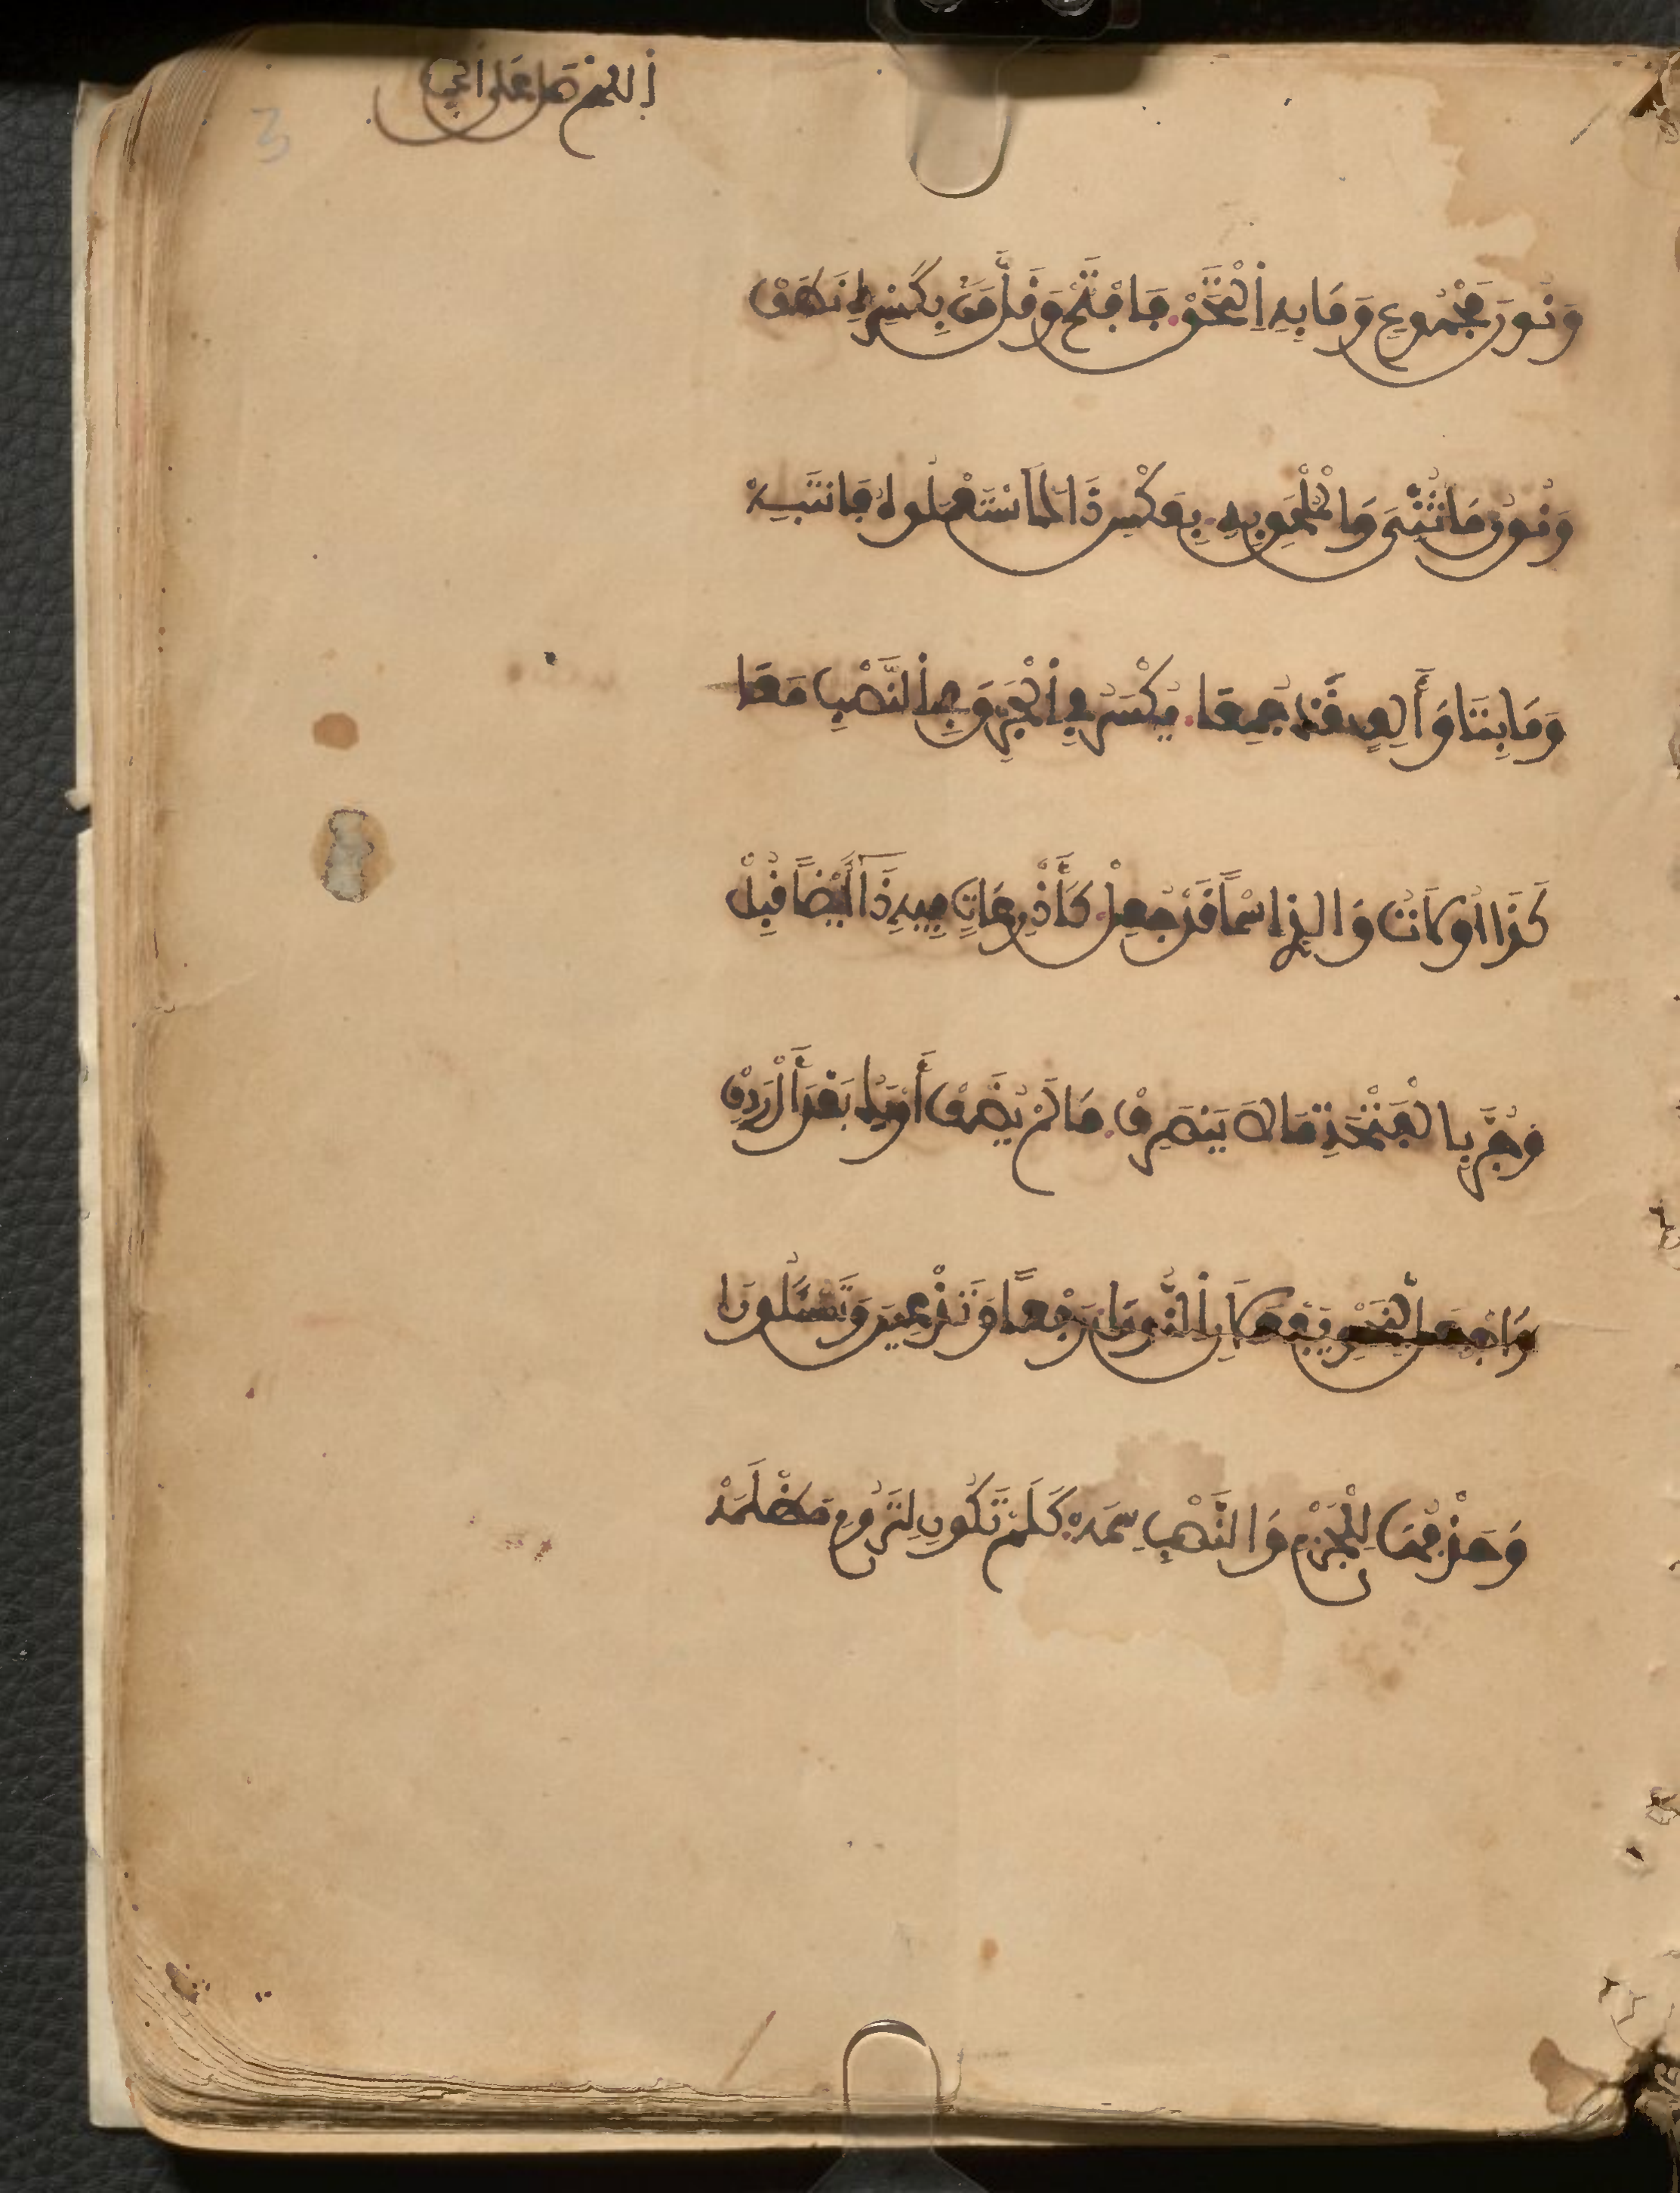 اللهم صل على
وَنُونَ مَجْمُوعٍ وَمَا بِهِ اِلْتَحَقْ فَافْتَحْ وَقَلَّ مَنْ بِكَسْرِهِ نَطَقْ
وَنُونُ مَا ثُنِّيَ وَالْمُلْحَقِ بِهِ بِعَكْسِ ذَاكَ اسْتَعْمَلُوهُ فَانْتَبِهْ
وَمَا بِتَا وَأَلِفٍ قَدْ جُمِعَا يُكْسَرُ فِي الْجَرِّ وَفِي النَّصْبِ مَعَا
كَذَا أُولَاتُ وَالذِي اسْمًا قَدْ جُعِلْ كَأَذْرِعَاتٍ فِيهِ ذَا أَيْضًا قُبِلْ
وَجُرَّ بِالْفَتْحَةِ مَا لَا يَنْصَرِفْ مَا لَمْ يُضَفْ أَوْ يَكُ بَعْدَ أَلْ رَدِفْ
وَاجْعَلْ لِنَحْوِ يَفْعَلَانِ النُّونَا رَفْعًا وَتَدْعِينَ وَتَسْئَلُونَا
وَحَذْفُهَا لِلْجَزْمِ وَالنَّصْبِ سِمَهْ كَلَمْ تَكُونِ لِتَرُومِ مَظْلَمَهْ